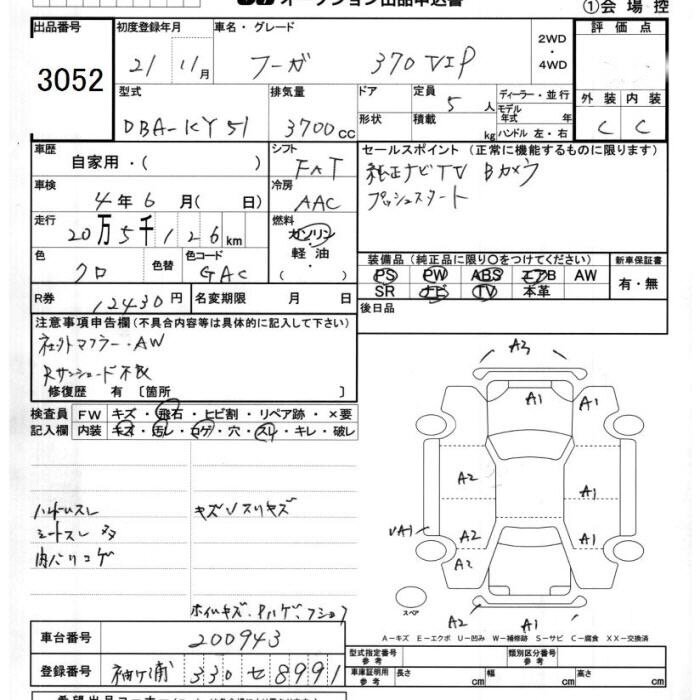 オークション出品申込書
①会場控
出品番号
3052
初度登録年月
21 11月
車名・グレード
フーガ 370 VIP
2WD
・
4WD
評価点
型式
DBA-KY51
排気量
3700cc
ドア
形状
定員
5人
積載
kg
ディーラー・並行
モデル年式 年
ハンドル 左・右
外装 内装
C C
車歴
自家用・( )
シフト
FAT
セールスポイント (正常に機能するものに限ります)
純正ナビTV Bカメラ
プッシュスタート
車検
4年6月( 日)
冷房
AAC
走行
20万5千126km
燃料
ガソリン
軽油
・( )
色
クロ
色替
色コード
GAC
装備品 (純正品に限り○をつけてください)
PS PW ABS エアB AW
SR ナビ TV 本革
新車保証書
有・無
R券
12430円
名変期限 月 日
後日品
注意事項申告欄(不具合内容等は具体的に記入して下さい)
社外マフラー・AW
Rサンシェード不良
修復歴 有 〔箇所 〕
検査員
記入欄
FW キズ・飛石・ヒビ割・リペア跡・×要
内装 キズ・汚レ・コゲ・穴・スレ・キレ・破レ
ハンドルスレ
シートスレ多
内バリコゲ
キズVスリキズ
A3
A1
A1
A2
A1
VA1
A2
A1
A2
スペア
A2
A1
A-キズ E-エクボ U-凹み W-補修跡 S-サビ C-腐食 XX-交換済
車台番号
200943
登録番号
袖ヶ浦 330 セ 8991
型式指定番号
参考
類別区分番号
参考
車庫証明用
参考
長さ cm
幅 cm
高さ cm